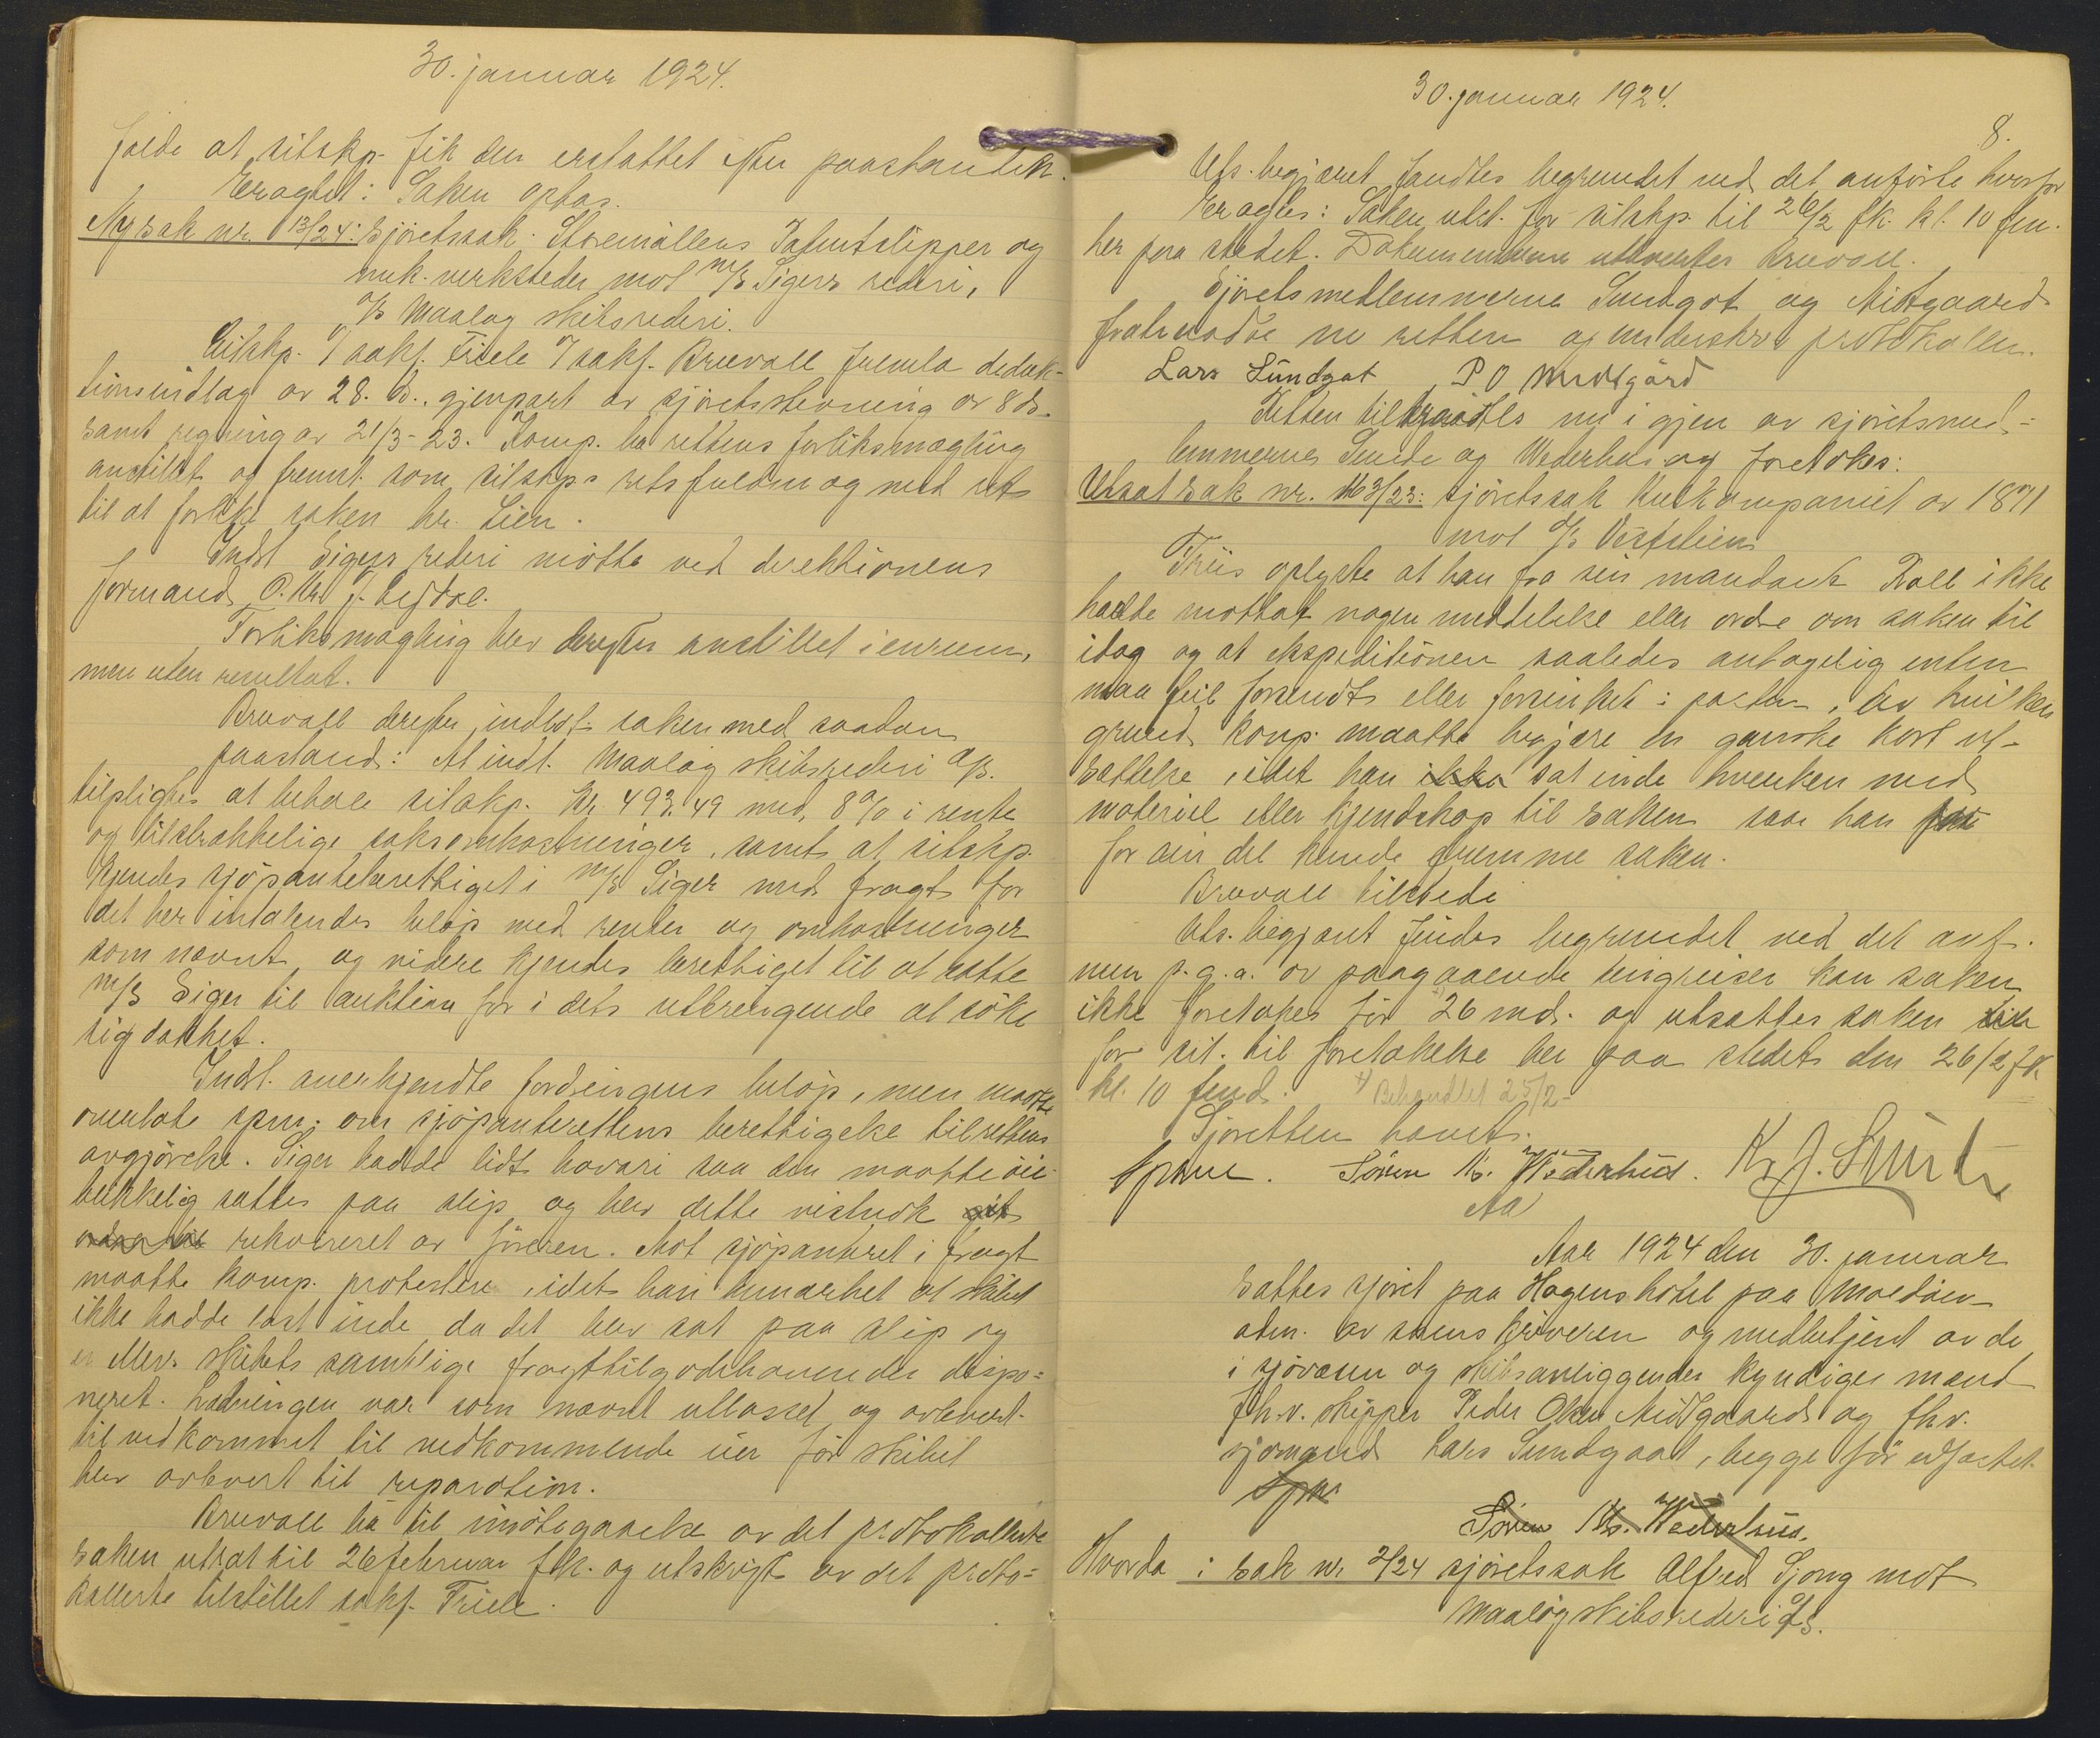 30. januar 1924.
falde at citskp. fik den erstattet
Eragtet: Saken optas.
Ny sak nr. 13/24: Sjöretssak: Storemøllens Patentslipper og
mek. verksteder mot m/s Sigers rederi,
a/s Maaløy skibsrederi.
Citskp. v/ sakf. Friele v/ sakf. Bruvall fremla deduk-
tionsindlag av 28. ds. gjenpart av sjöretsstevning av 8 ds.
samt regning av 21/3-23. Komp. ba rettens forliksmægling
anstillet og fremst. som citskps retsfuldmægtig med ret
til at forlike saken hr. Lien.
Indst. Sigers rederi mötte ved direktionens
formand O. Kr.
Forliksmægling blev derefter anstillet i enrum,
men uten resultat.
Bruvall derefter indlot saken med saadan
paastand: At indst. Maaløy skibsrederi a/s.
tilpligtes at betale citskp. Kr. 493.49 med 8% i rente
og tilstrækkelige saksomkostninger, samt at citskp.
kjendes sjöpanteberettiget i m/s Siger med fragt for
det her intalendes belöp med renter og omkostninger
som nævnt, og videre kjendes berettiget til at sætte
m/s Siger til auktion for i dets utbringende at söke
sig dækket.
Indst. anerkjendte fordringens belöp, men maatte
overlate spm. om sjöpanterettens berettigelse til rettens
avgjörelse. Siger hadde lidt havari saa den maatte öie-
blikkelig sættes paa slip og blev dette vistnok
rekvireret av föreren. Mot sjöpanteret i fragt
maatte komp. protestere, idet han bemærket at skibet
ikke hadde last inde da det blev sat paa slip og
er ellers skibets samtlige fragttilgodehavender dispo-
neret. Ladningen var som nævnt utlosset og avlevert
til vedkommet til vedkommende eier för skibet
blev avlevert til reparation.
Bruvall ba til imötegaaelse av det protokollerte
saken utsat til 26 februar fk. og utskrift av det proto-
kollerte tilstillet sakf. Friele.
30. januar 1924.
8.
Uts. begjæret fandtes begrundet ved det anförte hvorfor
Eragtes: Saken utst. for citskp. til 26/2 fk. kl. 10 fm.
her paa stedet. Dokumenterne utleveres Bruvall.
Sjöretsmedlemmerne Sundgot og Midtgaard
fratraadte nu retten og underskrev protokollen.
Lars Sundgot P O Midtgård
Retten tiltraadtes nu i gjen av sjöretsmed-
lemmerne Sunde og Wederhus og foretokes:
Utsat sak nr. 163/23: sjöretssak Kulkompaniet av 1871
mot a/s Vestheim
Friis oplyste at han fra sin mandant Koll ikke
hadde mottat nogen meddelelse eller ordre om saken til
idag og at ekspeditionen saaledes antagelig enten
maa feil forsendt eller forsinket i posten, av hvilken
grund komp. maatte begjære en ganske kort ut-
sættelse, idet han ikke sat inde hverken med
materiel eller kjendskap til saken saa han
for sin del kunde fremme saken.
Bruvall tilstede
Uts. begjært findes begrundet ved det anf.
men p.g.a. av paagaaende tingreiser kan saken
ikke foretakes för 26 md. og utsættes saken
for cit. til foretakelse her paa stedet den 26/2 fk.
kl. 10 fmd. x) Behandlet 25/2-
Sjöretten hævet.
Sören M. Wederhus. K. J. Sunde
Aa
Aar 1924 den 30. januar
sattes sjöret paa Hagens hotel paa Maaløien
adm. av sorenskriveren og medbetjent av de
i sjövæsen og skibsanliggender kyndige mænd
fh.v. skipper Peder Olsen Midtgaard og fhv.
sjömand Lars Sundgaat, begge för edfæstet.
Sören M. Wederhus.
Hvorda i sak nr. 2/24 sjöretssak Alfred Sjong mot
Maaløy skibsrederi a/s.